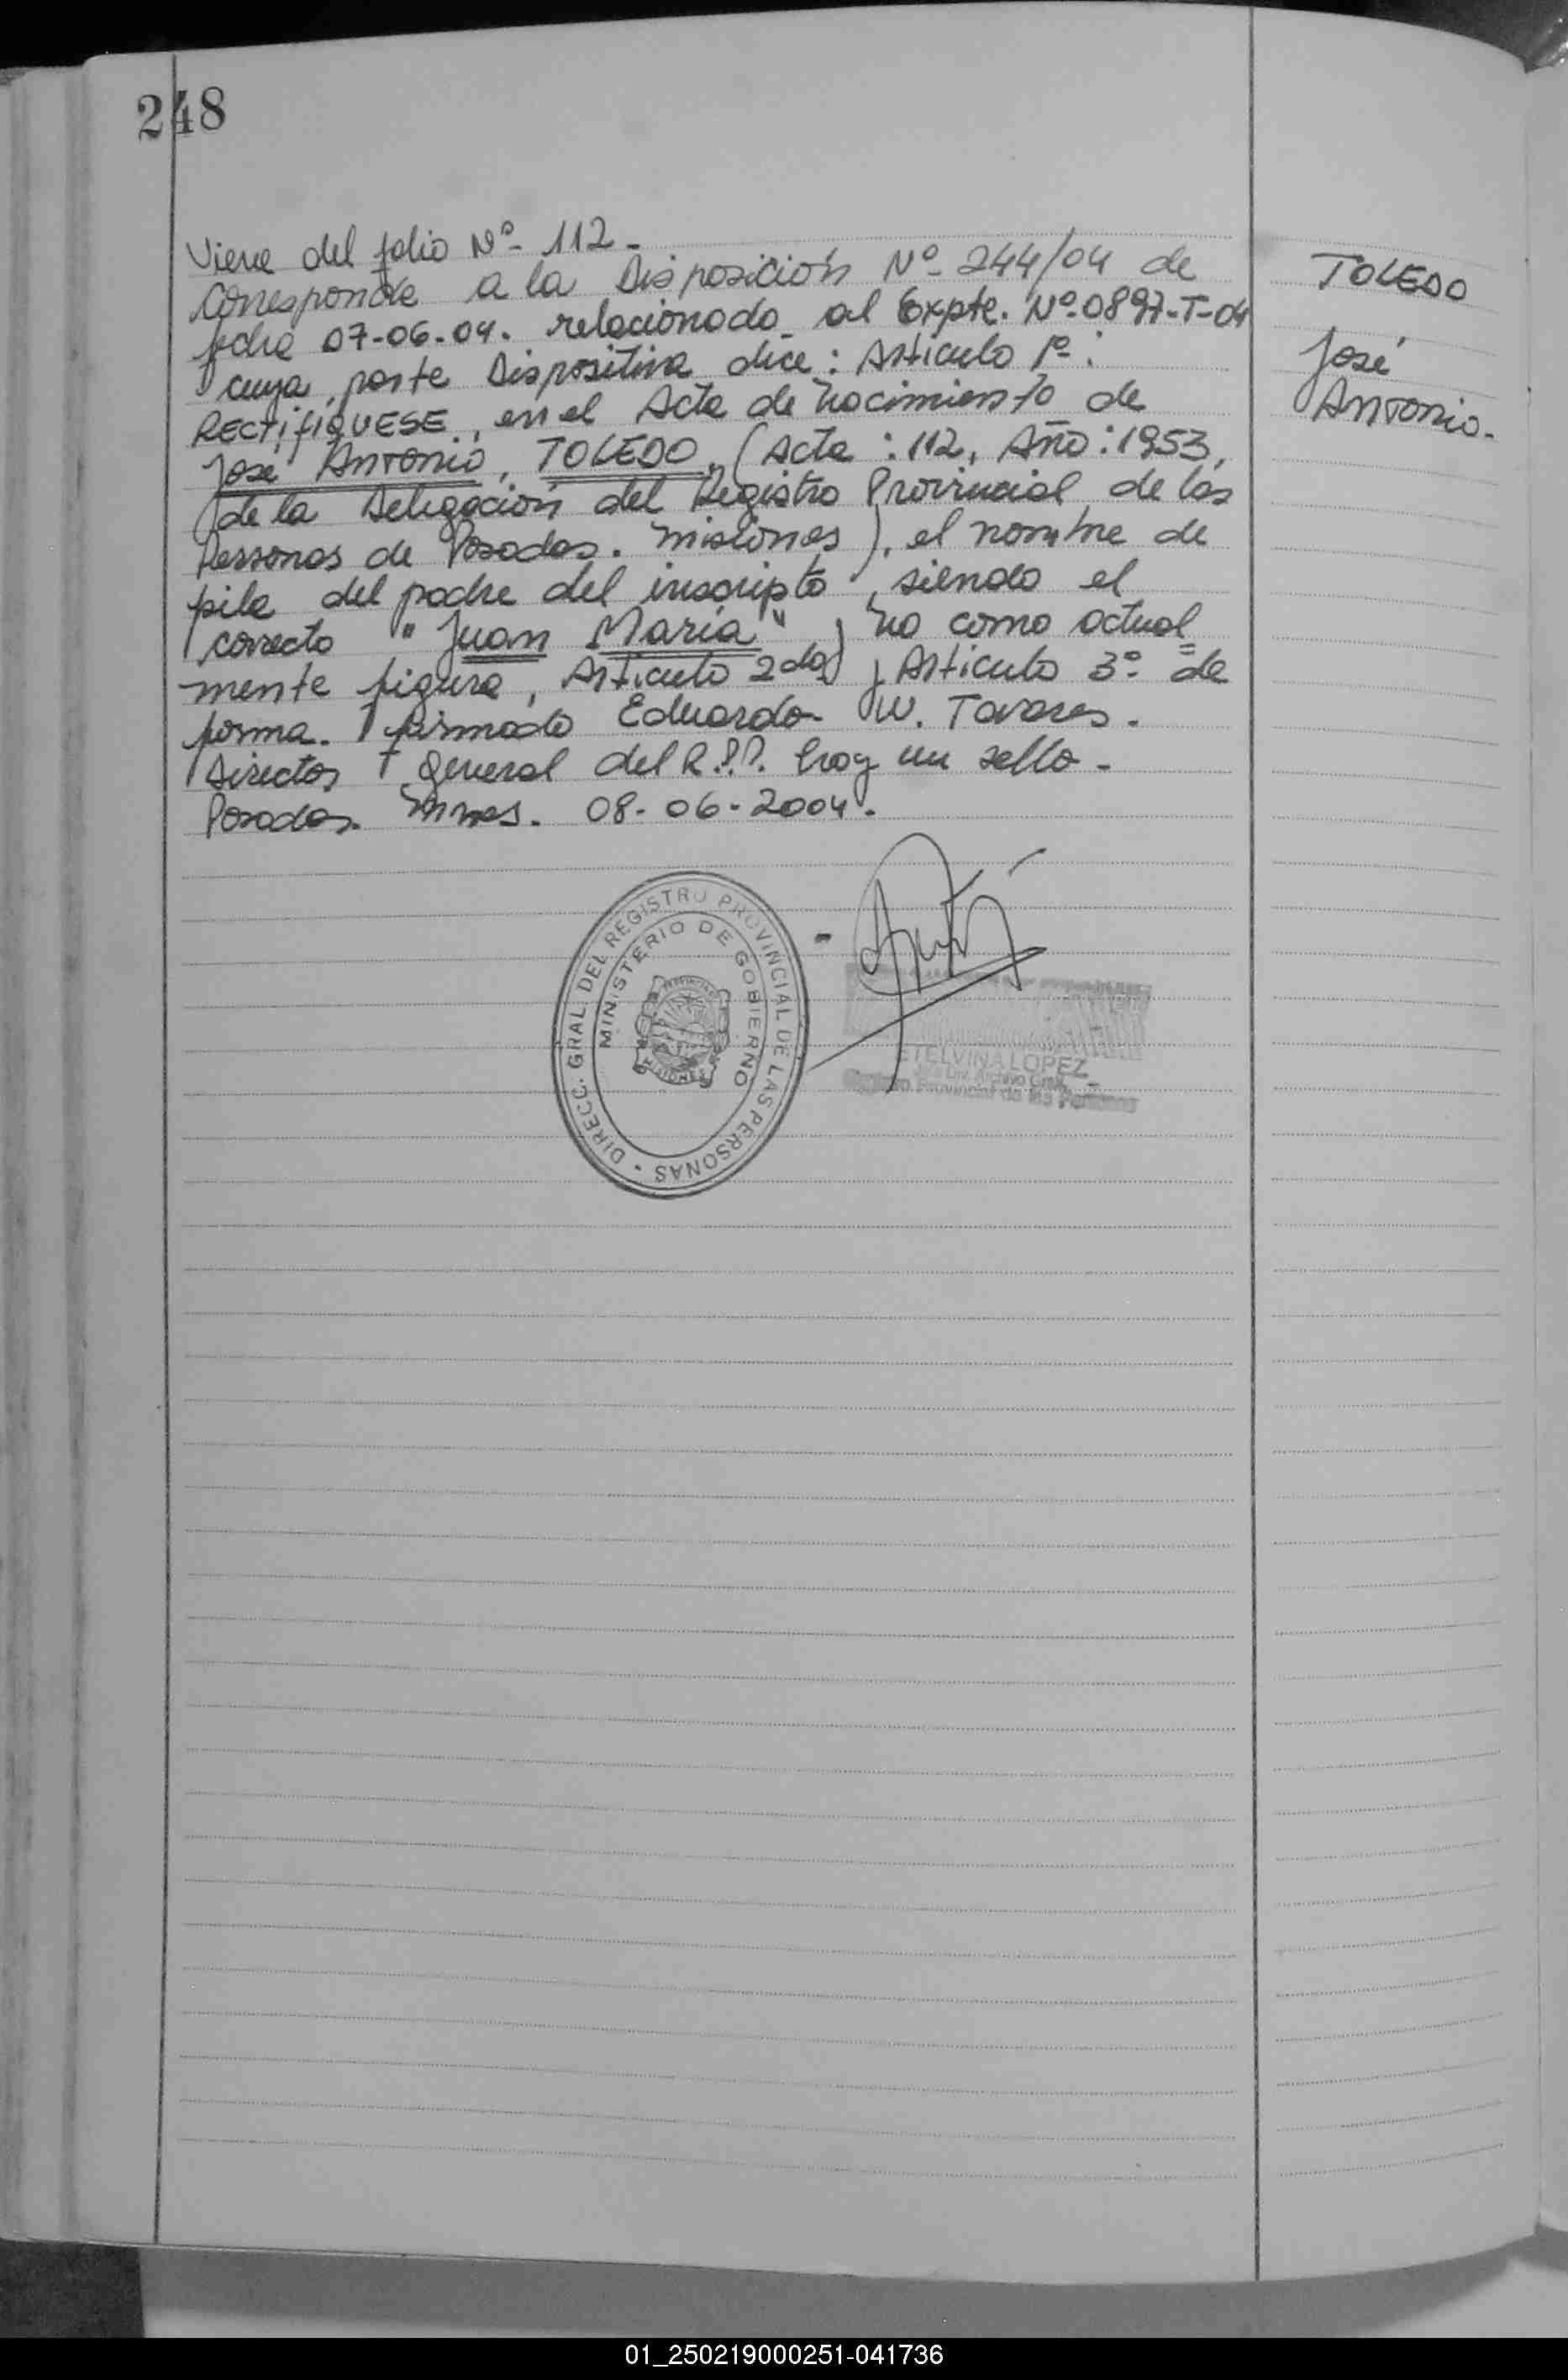 248
Viene del folio Nº- 112-
Corresponde a la Disposición Nº- 244/04 de
fecha 07-06-04. relacionado al Expte. Nº-0897-T-04
cuya, parte Dispositiva dice: Artículo 1º-:
RECTIFIQUESE, en el Acta de Nacimiento de
José Antonio, TOLEDO, (Acta: 112, Año: 1953,
de la Delegación del Registro Provincial de las
Personas de Posadas. Misiones), el nombre de
pila del padre del inscripto, siendo el
correcto "Juan María" y no como actual=
mente figura, Artículo 2do y Artículo 3º- de
forma. firmado Eduardo W. Tavares.
Director General del R.P.P. hay un sello-
Posadas. Mnes. 08-06-2004.
TOLEDO
José
Antonio.-
DIRECC. GRAL. DEL REGISTRO PROVINCIAL DE LAS PERSONAS
MINISTERIO DE GOBIERNO
MISIONES
ETELVINA LOPEZ
Archivo Gral.
Registro Provincial de las Personas
01_250219000251-041736